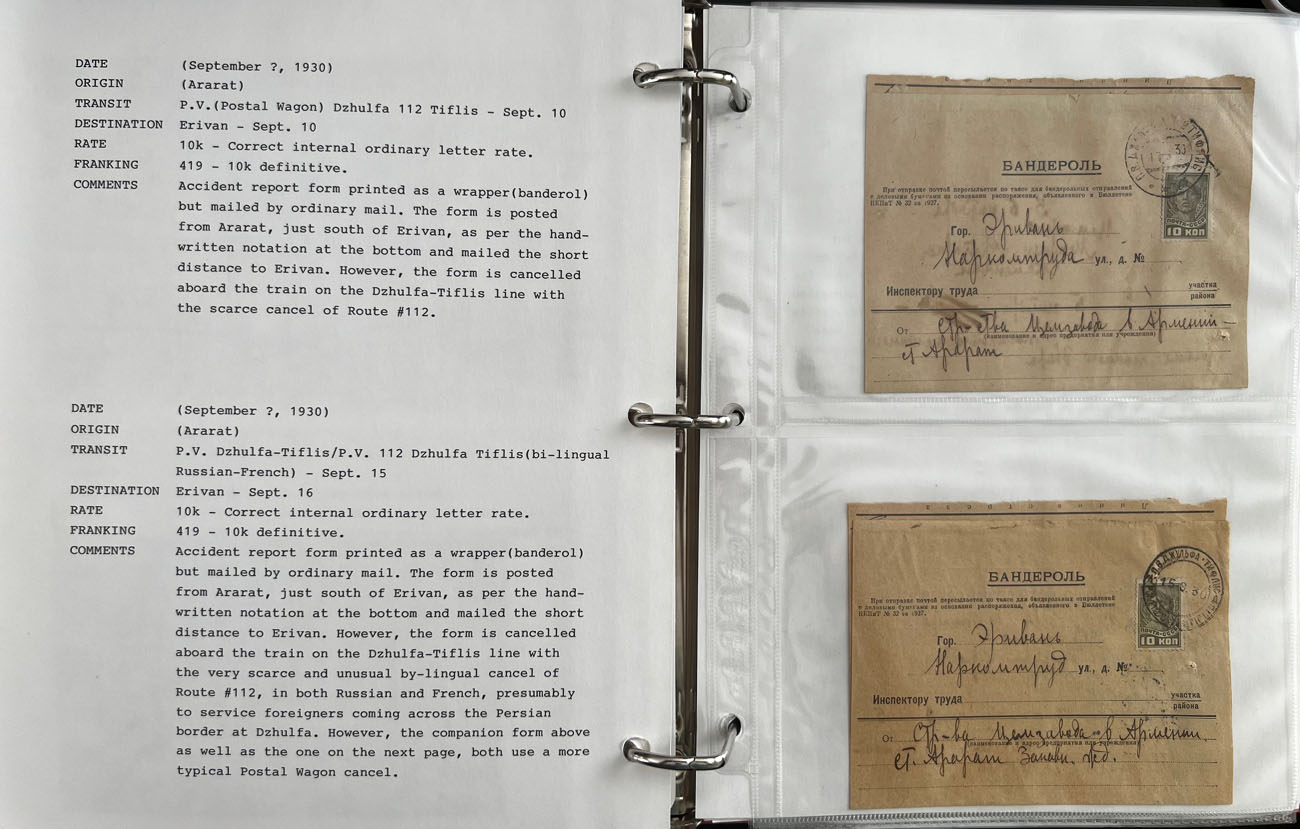 DATE (September ?, 1930)
ORIGIN (Ararat)
TRANSIT P.V.(Postal Wagon) Dzhulfa 112 Tiflis - Sept. 10
DESTINATION Erivan - Sept. 10
RATE 10k - Correct internal ordinary letter rate.
FRANKING 419 - 10k definitive.
COMMENTS Accident report form printed as a wrapper(banderol)
but mailed by ordinary mail. The form is posted
from Ararat, just south of Erivan, as per the hand-
written notation at the bottom and mailed the short
distance to Erivan. However, the form is cancelled
aboard the train on the Dzhulfa-Tiflis line with
the scarce cancel of Route #112.
DATE (September ?, 1930)
ORIGIN (Ararat)
TRANSIT P.V. Dzhulfa-Tiflis/P.V. 112 Dzhulfa Tiflis(bi-lingual
Russian-French) - Sept. 15
DESTINATION Erivan - Sept. 16
RATE 10k - Correct internal ordinary letter rate.
FRANKING 419 - 10k definitive.
COMMENTS Accident report form printed as a wrapper(banderol)
but mailed by ordinary mail. The form is posted
from Ararat, just south of Erivan, as per the hand-
written notation at the bottom and mailed the short
distance to Erivan. However, the form is cancelled
aboard the train on the Dzhulfa-Tiflis line with
the very scarce and unusual by-lingual cancel of
Route #112, in both Russian and French, presumably
to service foreigners coming across the Persian
border at Dzhulfa. However, the companion form above
as well as the one on the next page, both use a more
typical Postal Wagon cancel.
БАНДЕРОЛЬ
При отправке почтой пересылается по таксе для бандерольных отправлений
с деловыми бумагами на основании распоряжения, объявленного в Бюллетене
НКПиТ № 32 за 1927.
ПОЧТА-СССР
10 КОП
Гор. Эривань
Наркомтруда ул., д. №
Инспектору труда участка
района
От Стр-ства Цемзавода в Армении-
(наименование и адрес предприятия или учреждения)
ст Арарат
БАНДЕРОЛЬ
При отправке почтой пересылается по таксе для бандерольных отправлений
с деловыми бумагами на основании распоряжения, объявленного в Бюллетене
НКПиТ № 32 за 1927.
П.В. ДЖУЛЬФА-ТИФЛИС
15 9 30
ПОЧТА-СССР
10 КОП
Гор. Эривань
Наркомтруд ул., д. №
Инспектору труда участка
района
От Стр-ва Цемзавода в Армении
(наименование и адрес предприятия или учреждения)
ст. Арарат Закавк. жд.